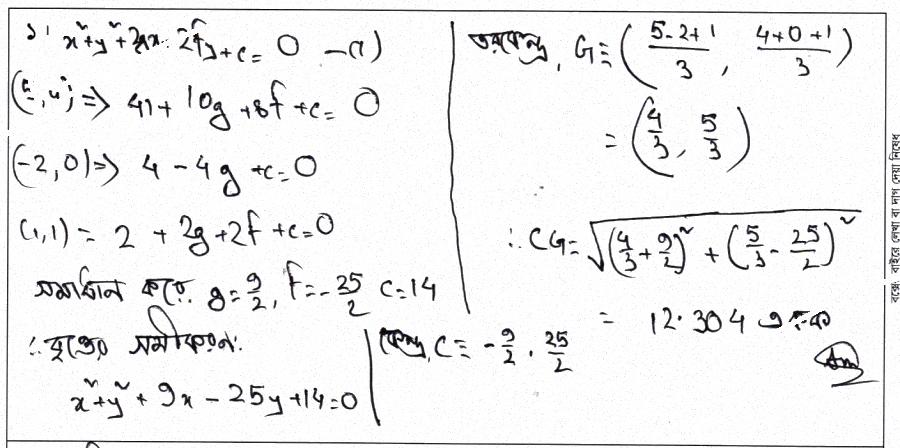 ১। x²+y²+2gx+2fy+c= 0 —(1)
(5,4) => 41+10g+8f+c=0
(-2,0)=> 4-4g+c=0
(1,1) = 2+2g+2f+c=0
সমাধান করে, g=9/2, f=-25/2 c=14
∴ বৃত্তের সমীকরণ:
x²+y²+9x-25y+14=0
কেন্দ্র, C ≡ -9/2, 25/2
ভরকেন্দ্র, G≡ (5-2+1/3, 4+0+1/3)
= (4/3, 5/3)
∴ CG= √(4/3+9/2)²+(5/3-25/2)²
= 12.304 একক
Ans
বক্সে বাইরে লেখা বা দাগ দেয়া নিষেধ